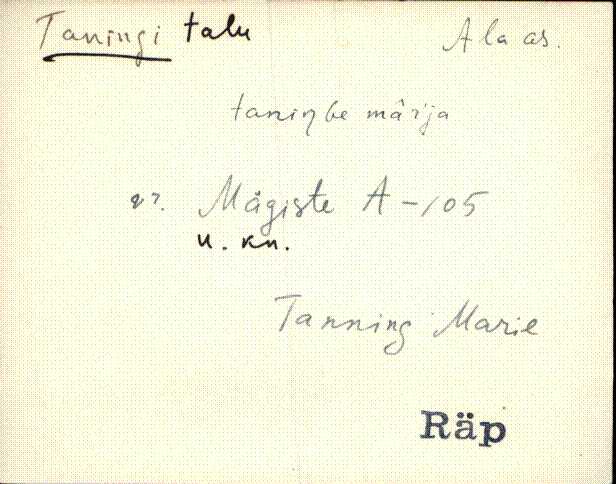 Taningi talu Ala as.
taniŋbe mârja
vr. Mägiste A-105
u. kn.
Tanning Marie
Räp